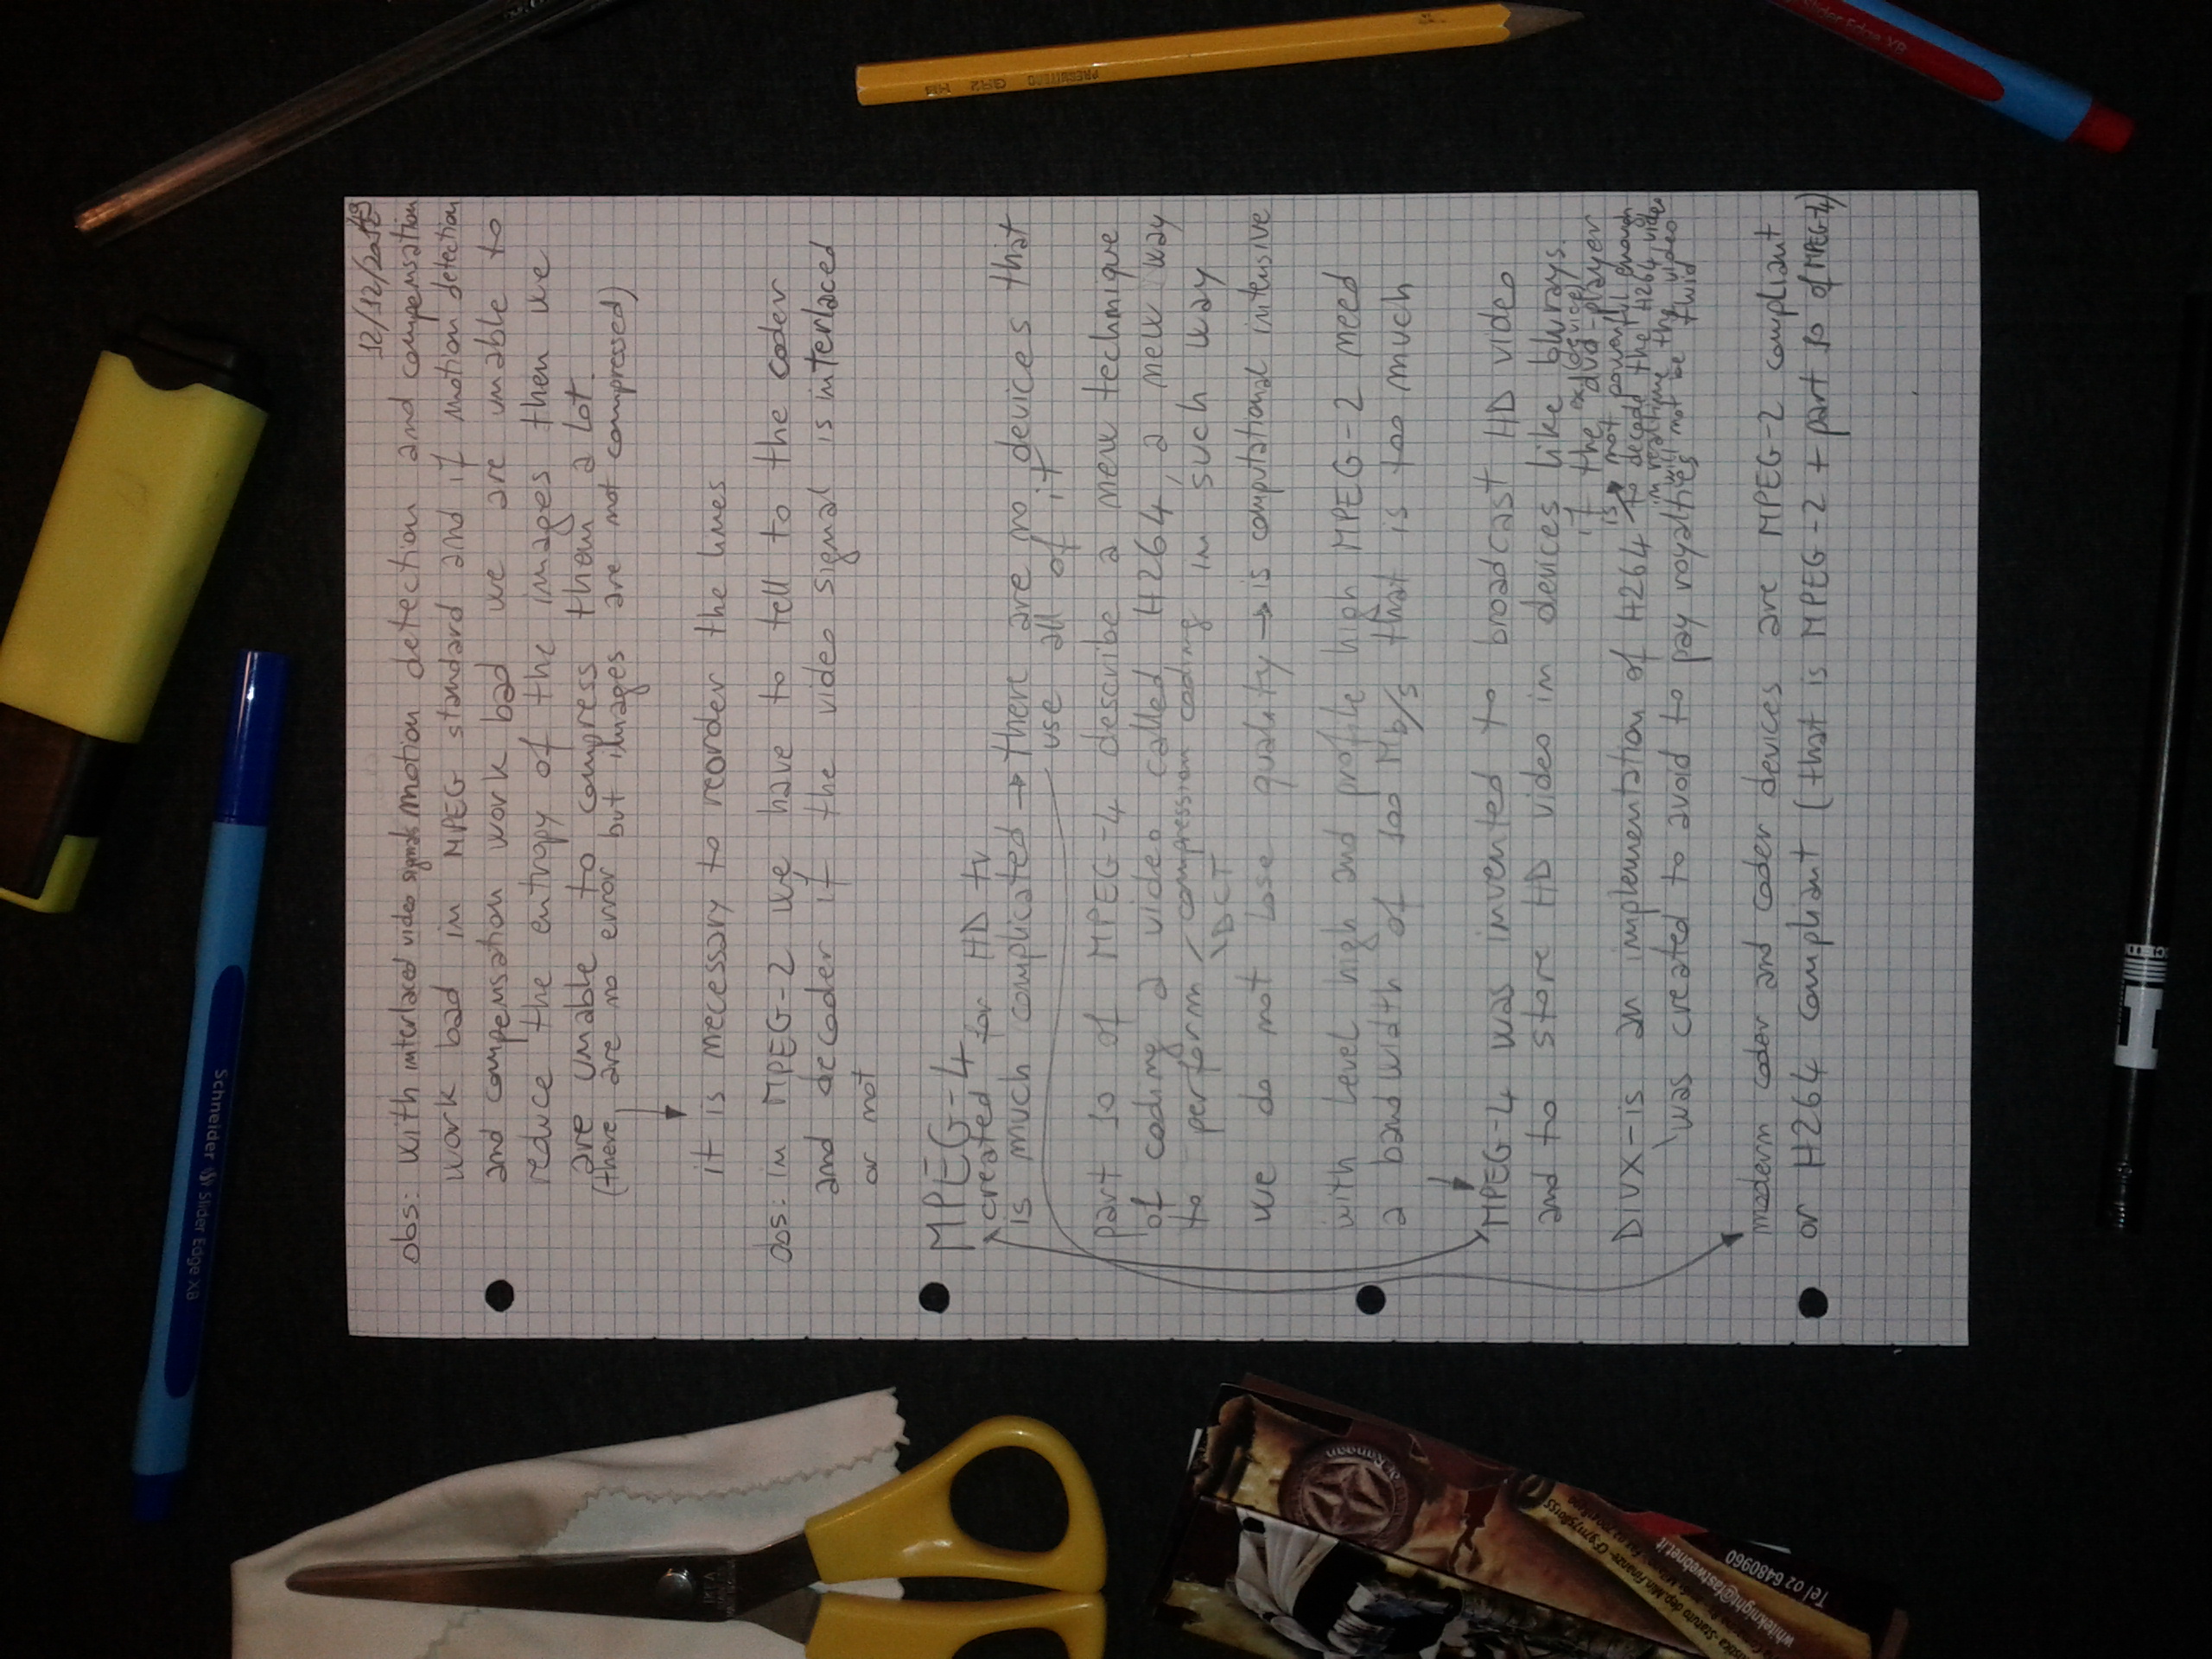 12/12/2013
obs: with interlaced video signals motion detection and compensation
work bad in MPEG standard and if motion detection
and compensation work bad we are unable to
reduce the entropy of the images then we
are unable to compress them a lot.
(there are no error but images are not compressed)
it is necessary to reorder the lines
obs: in MPEG-2 we have to tell to the coder
and decoder if the video signal is interlaced
or not
MPEG-4
created for HD tv
is much complicated → there are no devices that
use all of it
part 10 of MPEG-4 describe a new technique
of coding a video called H264, a new way
to perform compression coding in such way
DCT
we do not lose quality → is computational intensive
with level high and profile high MPEG-2 need
a bandwidth of 100 Mb/s that is too much
MPEG-4 was invented to broadcast HD video
and to store HD video in devices like blurays.
ex device
if the dvd-player
is not powerful enough
DIVX - is an implementation of H264 to decode the H264 video
in realtime the video
will not be fluid
was created to avoid to pay royalties
modern coder and coder devices are MPEG-2 compliant
or H264 compliant (that is MPEG-2 + part 10 of MPEG-4)
Schneider Slider Edge XB
Slider Edge XB
PRESBITERO GR2 HB
IKEA
whiteknight@fastwebnet.it
Tel 02 6480960